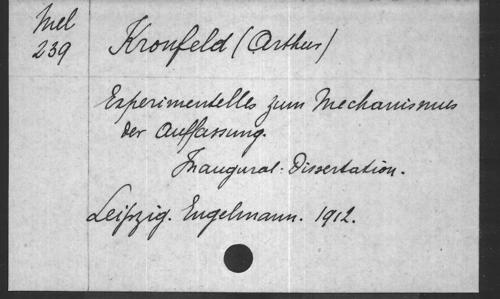 Mel
239
Kronfeld (Arthur)
Experimentelles zum Mechanismus
der Auffassung.
Inaugural-Dissertation.
Leipzig. Engelmann. 1912.